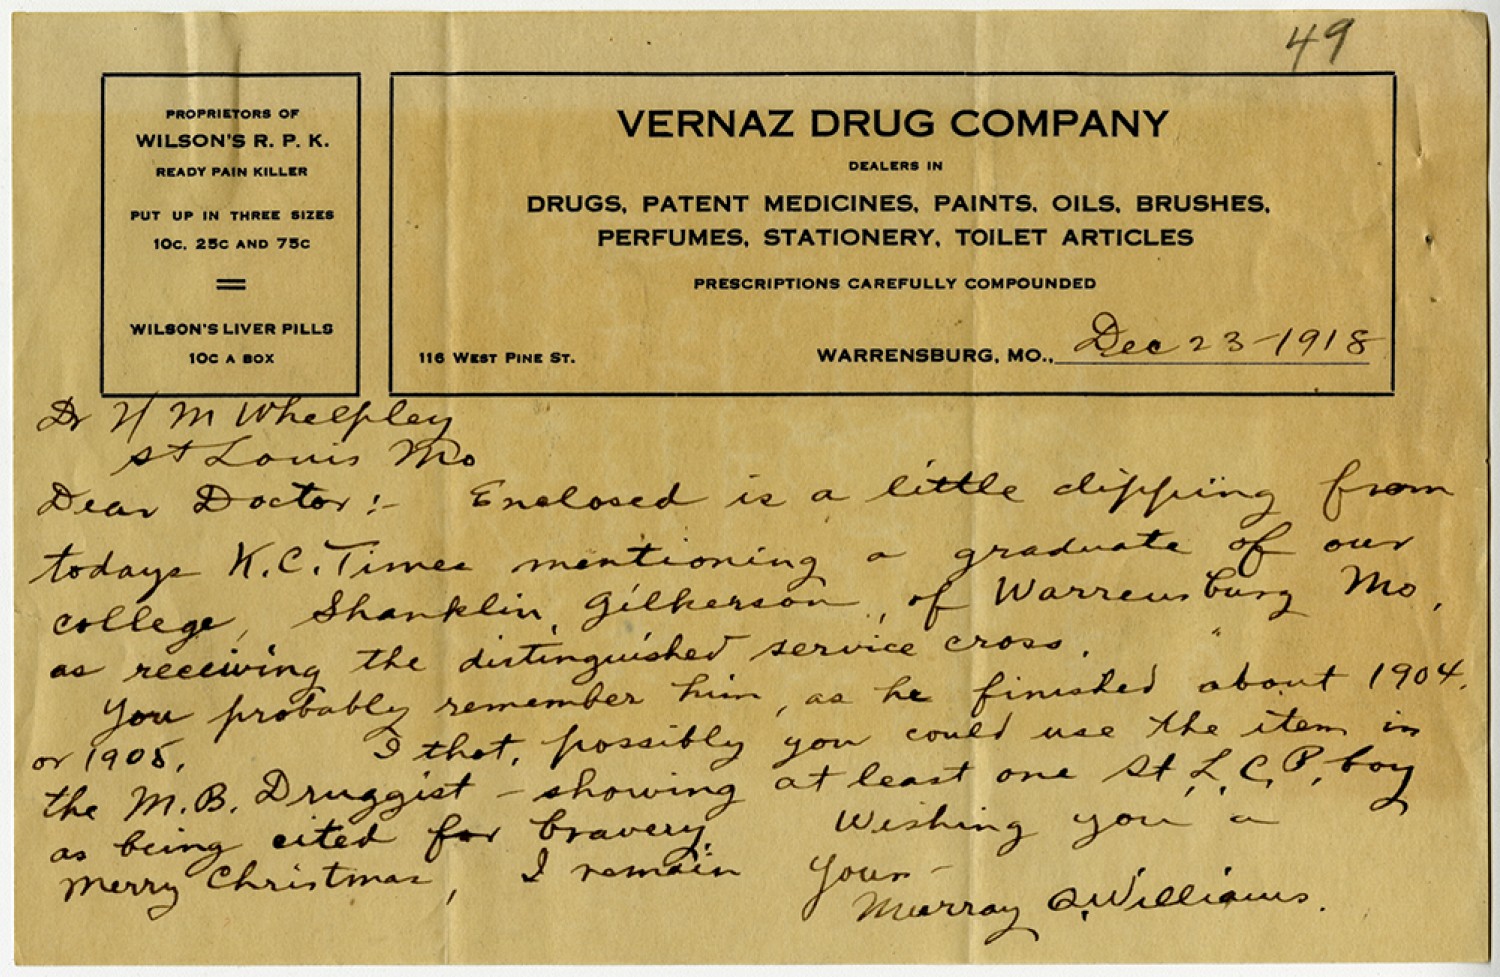 49
PROPRIETORS OF
WILSON'S R. P. K.
READY PAIN KILLER
PUT UP IN THREE SIZES
10C, 25C AND 75C
WILSON'S LIVER PILLS
10C A BOX
VERNAZ DRUG COMPANY
DEALERS IN
DRUGS, PATENT MEDICINES, PAINTS, OILS, BRUSHES,
PERFUMES, STATIONERY, TOILET ARTICLES
PRESCRIPTIONS CAREFULLY COMPOUNDED
116 WEST PINE ST.
WARRENSBURG, MO., Dec 23-1918
Dr H M Whelpley
St Louis Mo
Dear Doctor:- Enclosed is a little clipping from
todays K.C. Times mentioning a graduate of our
college, Shanklin, Gilkerson, of Warrensburg Mo,
as receiving the distinguished service cross.
You probably remember him, as he finished about 1904.
or 1905. I that, possibly you could use the item in
the M.B. Druggist - showing at least one St. L. C. P. boy
as being cited for bravery. Wishing you a
Merry Christmas, I remain Yours-
Murray Q Williams.